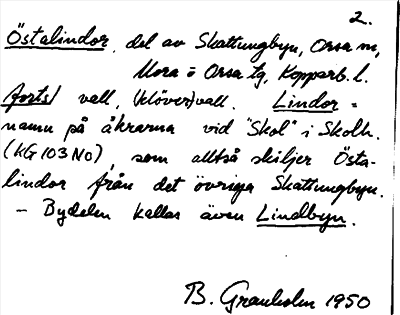 2.
Östalindor, del av Skattungbyn, Orsa sn,
Mora o Orsa tg, Kopparb. l.
(forts) vall, (klöver)vall. Lindor =
namn på åkrarna vid "Skol" i Skolh.
(KG 103 No), som alltså skiljer Östa-
lindor från det övriga Skattungbyn.
- Bydelen kallas även Lindbyn.
B. Granholm 1950